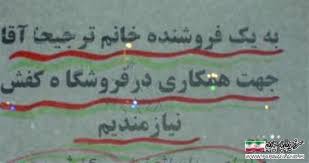 به یک فروشنده خانم ترجیحاً آقا
جهت همکاری در فروشگاه کفش
نیازمندیم